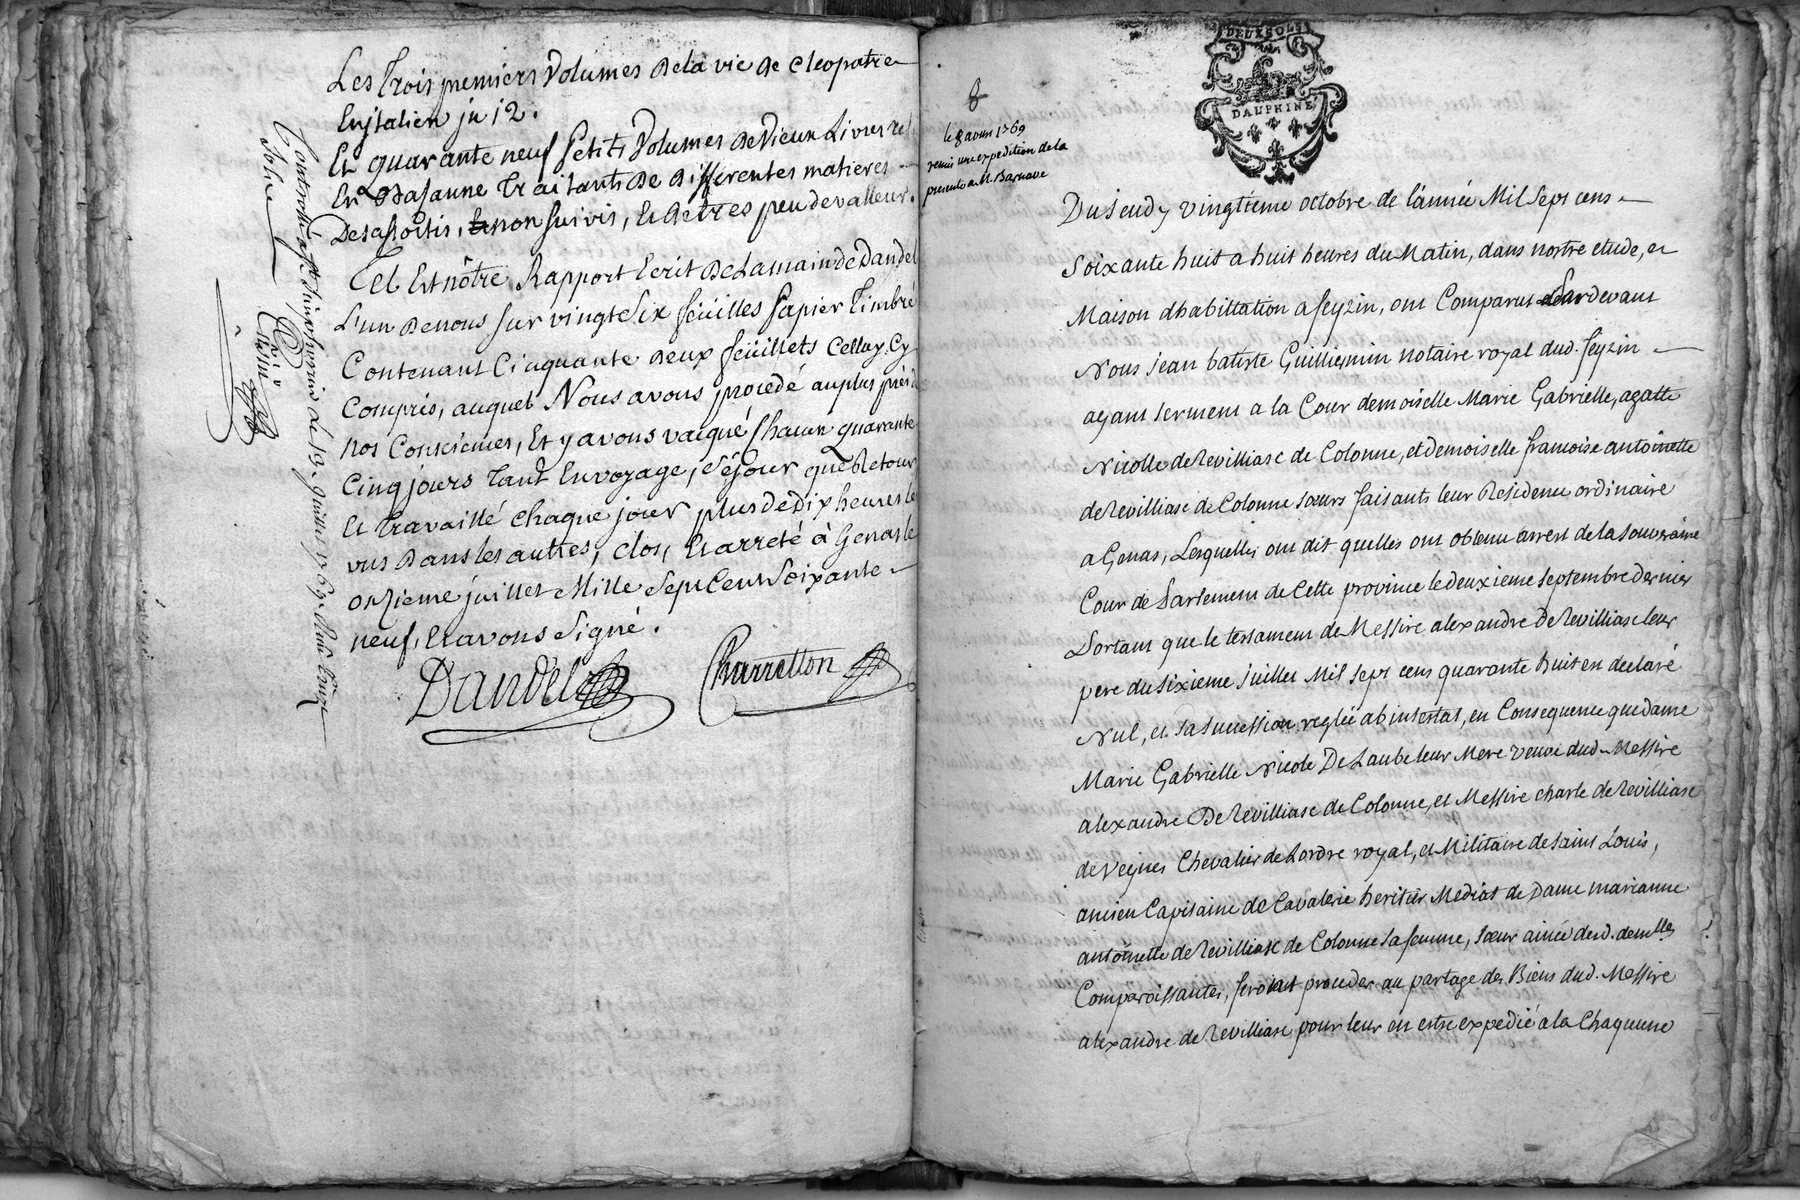 Les Trois premiers Volumes de la vie de Cleopatre
En jtalien jn 12.
Et quarante neuf Petits Volumes de Vieux Livres
En Basanne Traitants de differentes matieres
Desassortis, non suivis, Et de tres peu de valleur.
Tel Est nôtre Rapport Ecrit de La main de Dandel
L'un de nous sur vingt Six feüilles Papier Timbré
Contenant Cinquante deux feüillets Celluy Cy
Compris, auquel Nous avons procedé au plus près de
nos Consciences, Et y avons vacqué Chacun quarante
Cinq jours Tant En voyage, Séjour que Retour
Et Travaillé chaque jour plus de Dix heures le
uns dans les autres, Clos, Et arreté à Genas le
onzieme juillet Mille Sept Cent Soixante
neuf, Et avons Signé.
Dandel
Charretton
DEUX SOLS
DAUPHINE
le 8 avril 1769
remis une expedition de la
presente a M. Barnave
Du Jeudy vingtieme octobre de l'année Mil Sept cens
Soixante huit a huit heures du Matin, dans nostre etude, et
Maison d'habittation a feyzin, ont Comparus Pardevant
Nous jean batiste Guilliermin notaire royal dud. feyzin
ayant serment a la Cour demoiselle Marie Gabrielle, agatte
Nicolle de Revilliasc de Colonne, et demoiselle francoise antoinette
de Revilliasc de Colonne sœurs faisants leur Residence ordinaire
a Genas, Lesquelles ont dit quelles ont obtenu arrest de la souveraine
Cour de Parlement de Cette province le deuxieme septembre dernier
Portant que le testament de Messire alexandre De Revilliasc leur
pere du sixieme juillet Mil sept cens quarante huit en declaré
Nul, et sa succession reglée ab intestat, en Consequence que dame
Marie Gabrielle Nicole De Laube leur Mere veuve dud. Messire
alexandre De Revilliasc de Colonne, et Messire charle de Revilliasc
de Veynes Chevalier de Lordre royal, et Militaire de saint Louis,
ancien Capitaine de Cavalerie heritier Mediat de Dame marianne
antoinette de Revilliasc de Colonne sa femme, sœur ainée desd. demlles
Comparoissantes, feroint proceder au partage des Biens dud. Messire
alexandre de Revilliasc pour leur en estre expedié a la Chaqueune